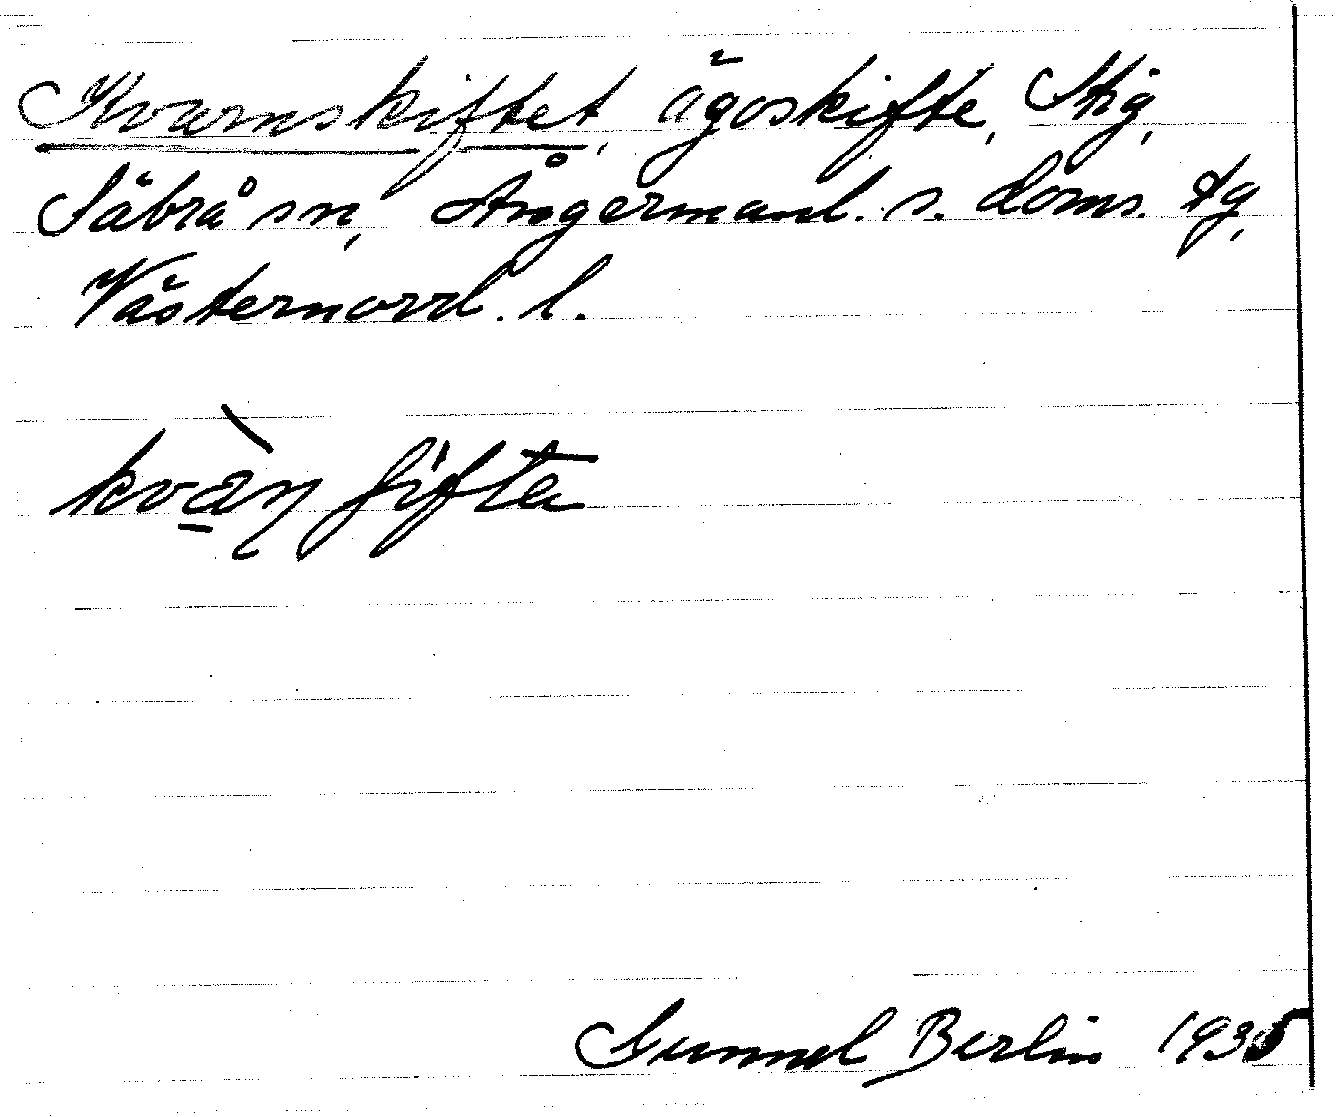 Kvarnskiftet, ägoskifte, Stig,
Säbrå sn, Ångermanl. s. doms. tg,
Västernorrl. l.
kvàɳ ʃifta
Gunnel Berlin 1935